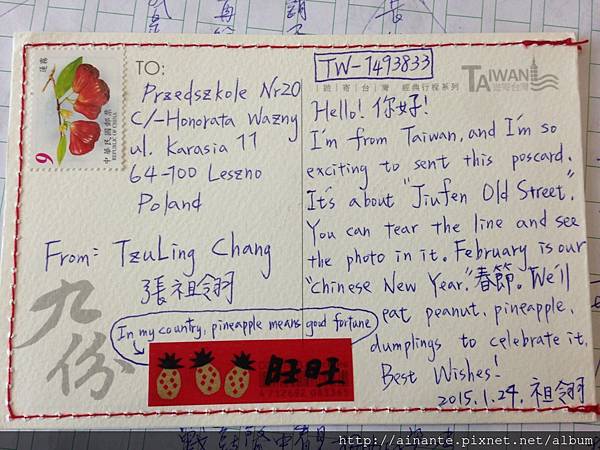 TW-1493833
TO:
Przedszkole Nr20
C/-Honorata Wazny
ul. Karasia 11
64-100 Leszno
Poland
From: TzuLing Chang
張祖翎
九份
In my country, pineapple means good fortune
旺旺
蓮霧
中華民國郵票
REPUBLIC OF CHINA
9
TAIWAN
遊寄台灣
遊寄台灣 經典行程系列
Hello! 你好!
I'm from Taiwan, and I'm so
exciting to sent this poscard.
It's about "Jiufen Old Street".
You can tear the line and see
the photo in it. February is our
"Chinese New Year." 春節. We'll
eat peanut, pineapple,
dumplings to celebrate it.
Best Wishes!
2015.1.24. 祖翎
http://ainante.pixnet.net/album